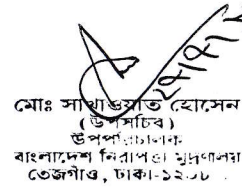 মোঃ সাখাওয়াত হোসেন
(উপসচিব)
উপপরিচালক
বাংলাদেশ নিরাপত্তা মুদ্রণালয়
তেজগাঁও, ঢাকা-১২০৮